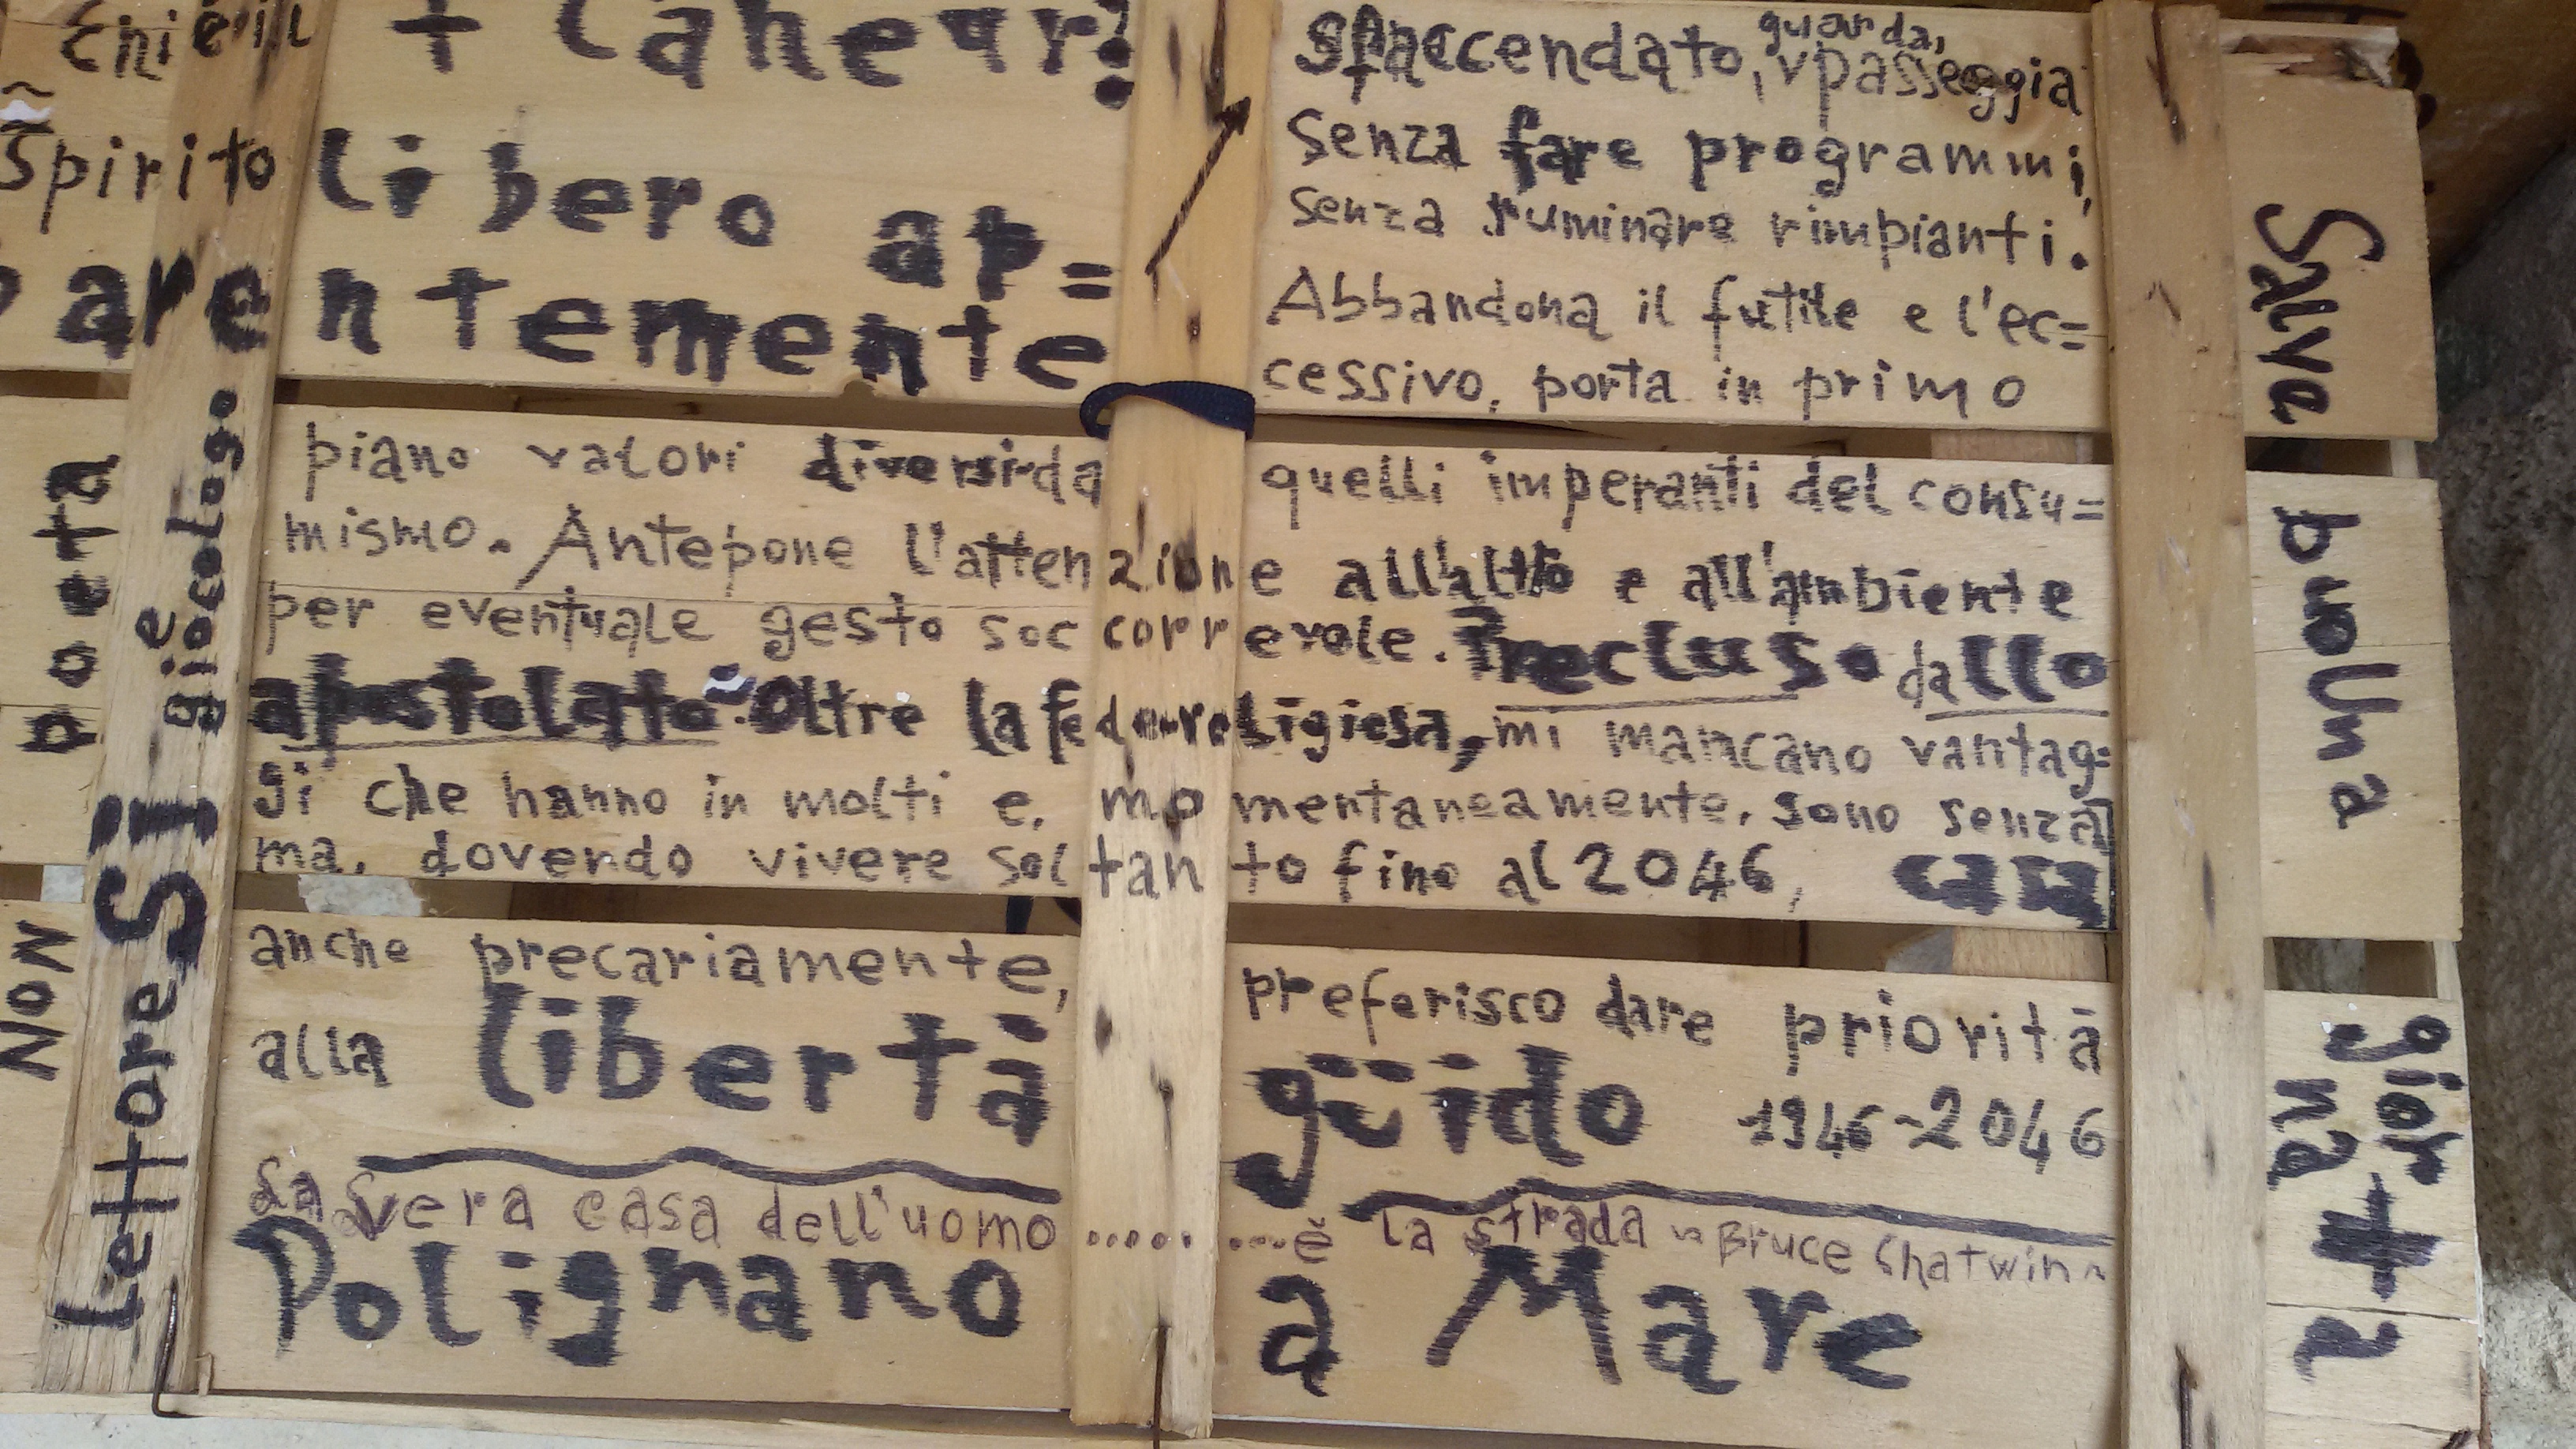 Flâneur!
Spirito libero ap=
parentemente
sfaccendato, guarda, passeggia
senza fare programmi,
senza ruminare rimpianti.
Abbandona il futile e l'ec=
cessivo, porta in primo
piano valori diversi da quelli imperanti del consu=
mismo. Antepone l'attenzione all'altro e all'ambiente
per eventuale gesto soccorrevole. Precluso dallo
apostolato. Oltre la fede religiosa, mi mancano vantag=
gi che hanno in molti e, momentaneamente, sono senza
ma, dovendo vivere soltanto fino al 2046, casa
anche precariamente, preferisco dare priorità
alla libertà
güido 1946-2046
La vera casa dell'uomo ..... ....è la strada ~ Bruce Chatwin ~
Polignano a Mare
NON poeta
Lettore SÌ e giocologo
Salve
buona
gior
na
ta